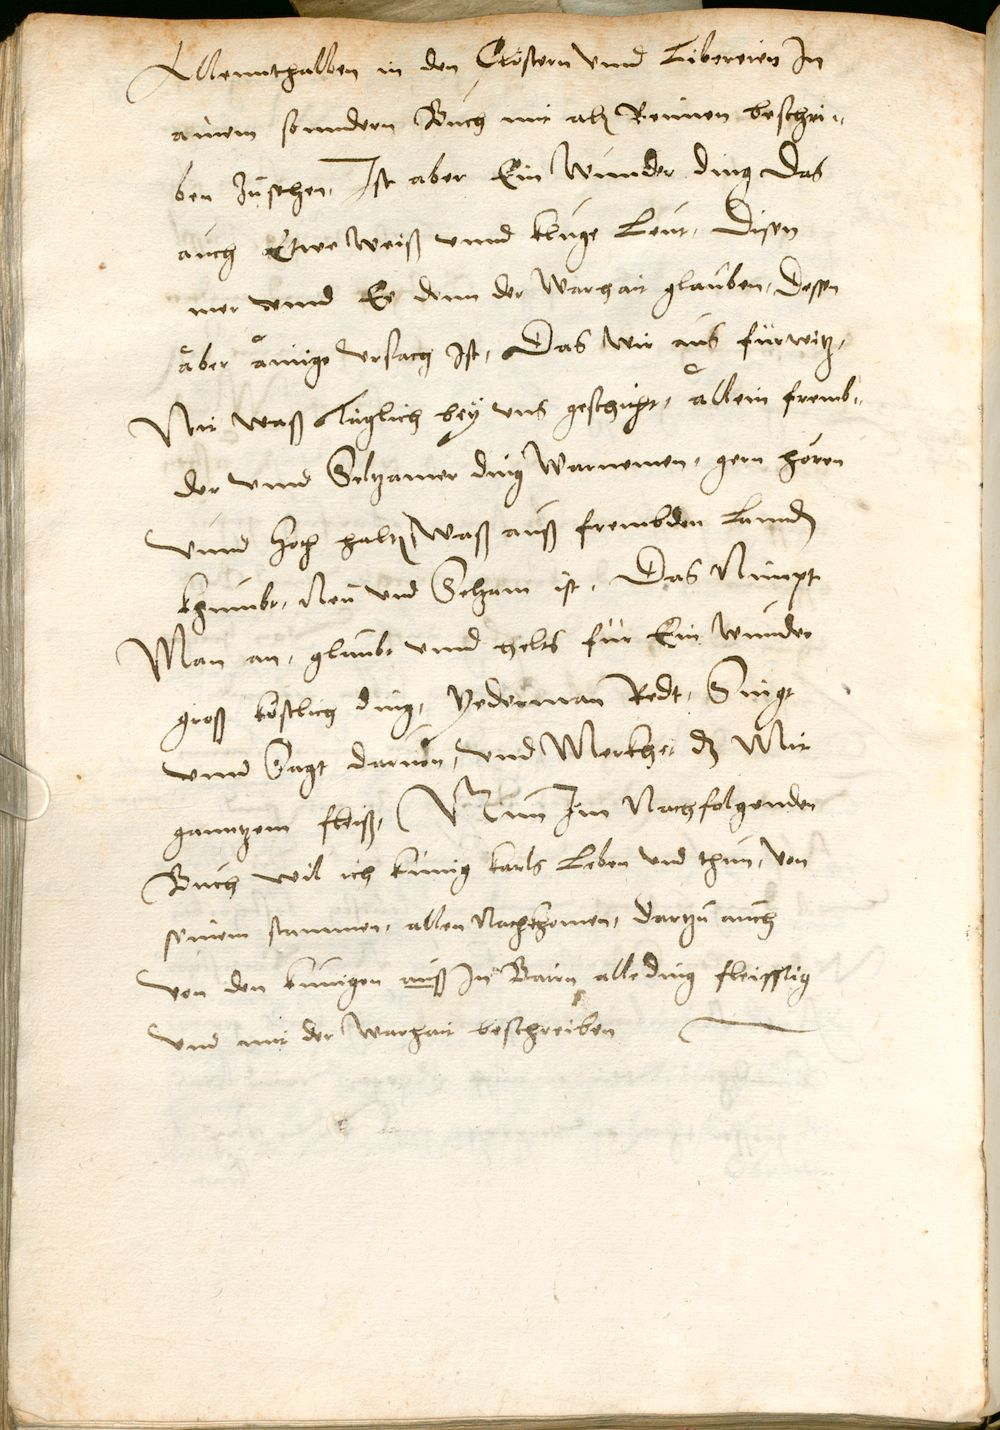 Allennthalben in den Clöstern vnnd Libereien In
ainem sonndern Buch mit alt Reimen beschri¬
ben Zusehen, Ist aber Ein Wunder ding Das
auch Etwe Weiß vnnd kluge Leut, Disen
mer vnnd Ee denn der Warhait glauben, Dessen
aber ainige vrsach Ist, Das wir aus fürwitz,
Nit waß Täglich bey vns geschicht, allein fremb¬
der vnnd Seltzamer ding Warnemen, gern hören
vnnd hoch halten, Waß auß frembden Lannden
khumbt, Neu vnd Selzam ist, Das Nimpt
Man an, glaubt vnnd helts für Ein wunder
groß köstlich ding, Yederman Redt, Singt
vnnd Sagt daruon, vnd Merkht dz Mit
ganntzem fleiß, Nun Im Nachfolgenden
Buch wil ich künig karls Leben vnd thun, von
seinem stammen, allen Nachkhomen, dartzu auch
von den künigen auß In Bairn alle ding fleissig
vnd mit der warhait beschreiben